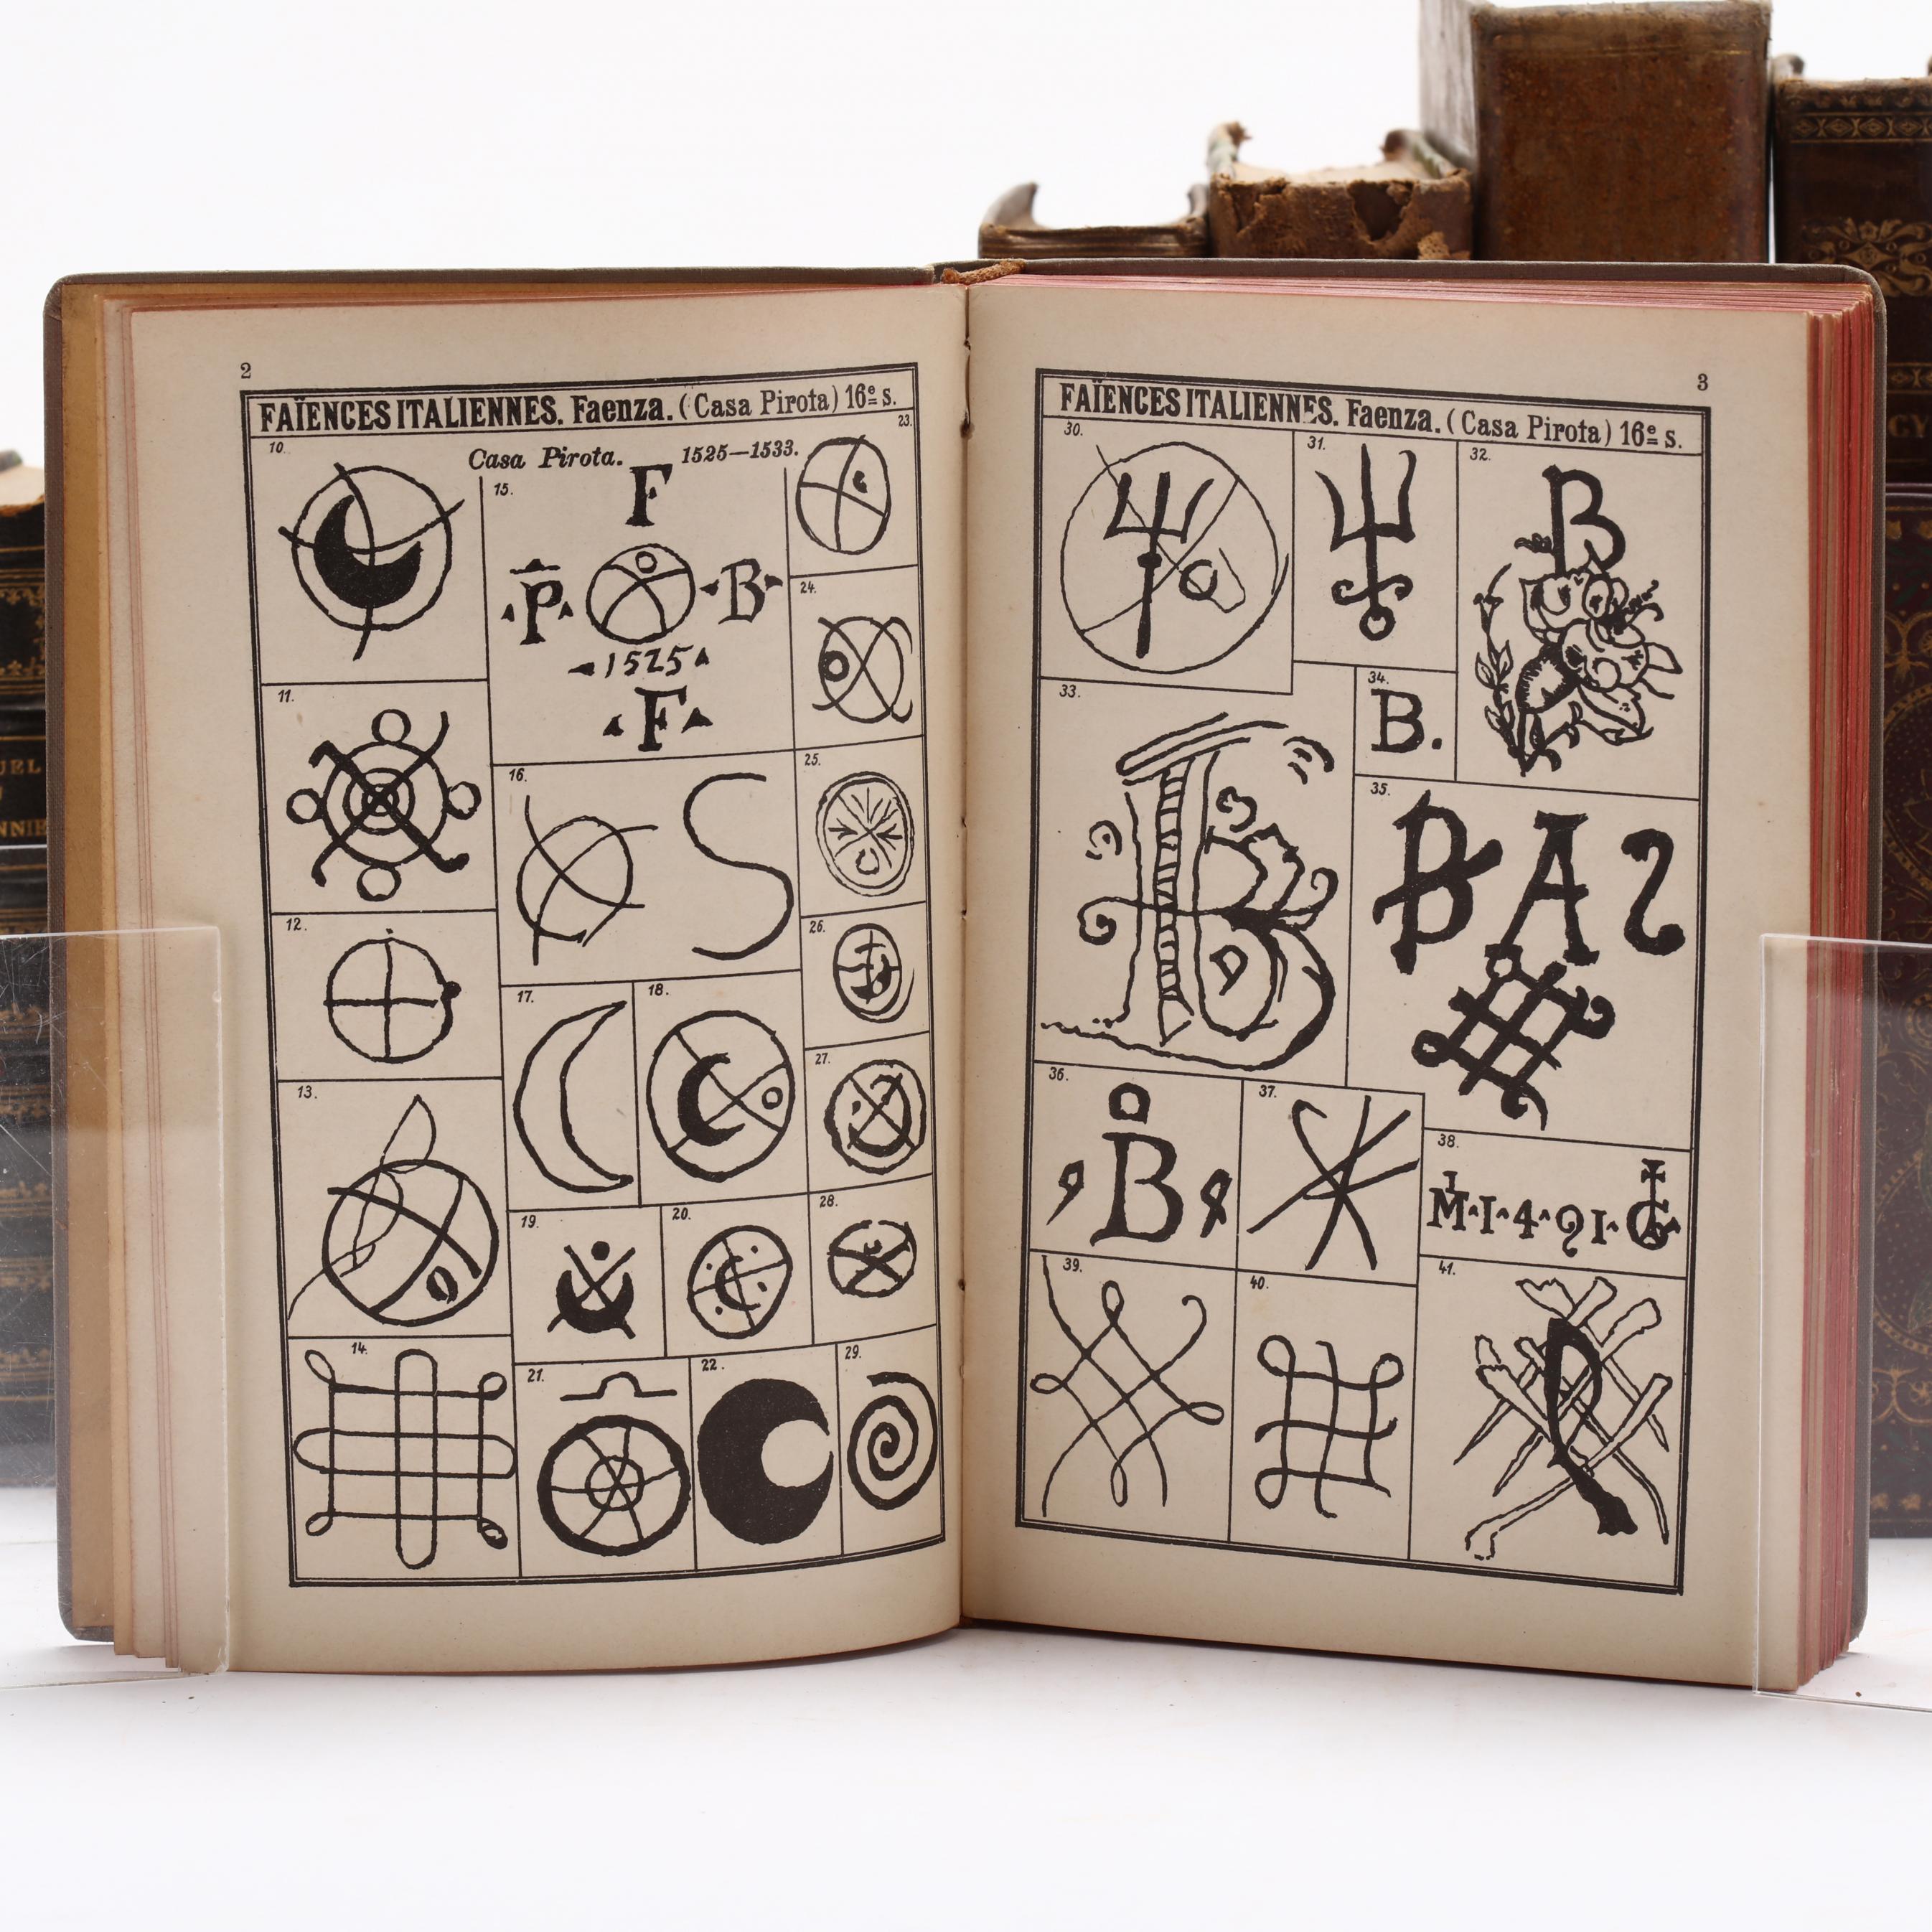 2
FAÏENCES ITALIENNES. Faenza. (Casa Pirota) 16e s.
10.
Casa Pirota. 1525—1533.
23.
15.
F
P
B
1525
F
24.
11.
16.
S
25.
12.
26.
17.
18.
27.
13.
19.
20.
28.
14.
21.
22.
29.
3
FAÏENCES ITALIENNES. Faenza. (Casa Pirota) 16e s.
30.
31.
32.
B
33.
B
34.
B.
35.
B A S
36.
B
37.
38.
M·I·4·9I·G
39.
40.
41.
UEL
NNIE
GY